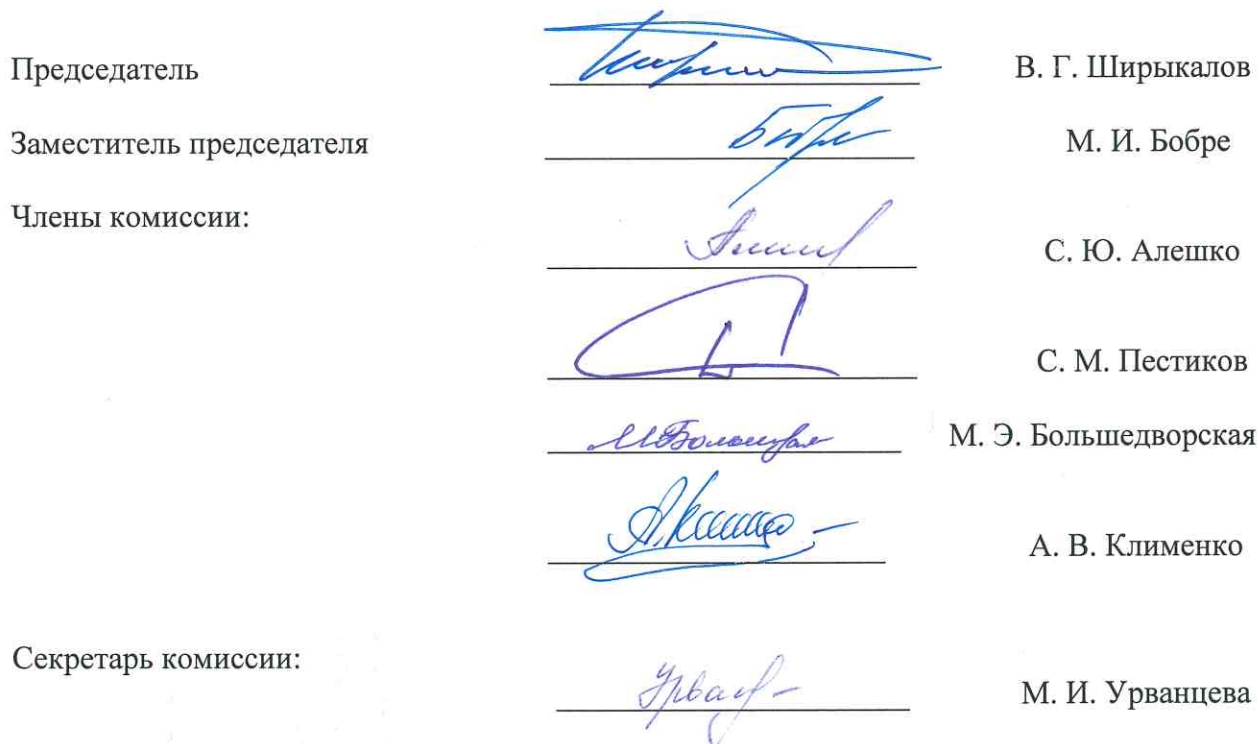 Председатель В. Г. Ширыкалов
Заместитель председателя М. И. Бобре
Члены комиссии:
С. Ю. Алешко
С. М. Пестиков
М. Э. Большедворская
А. В. Клименко
Секретарь комиссии:
М. И. Урванцева